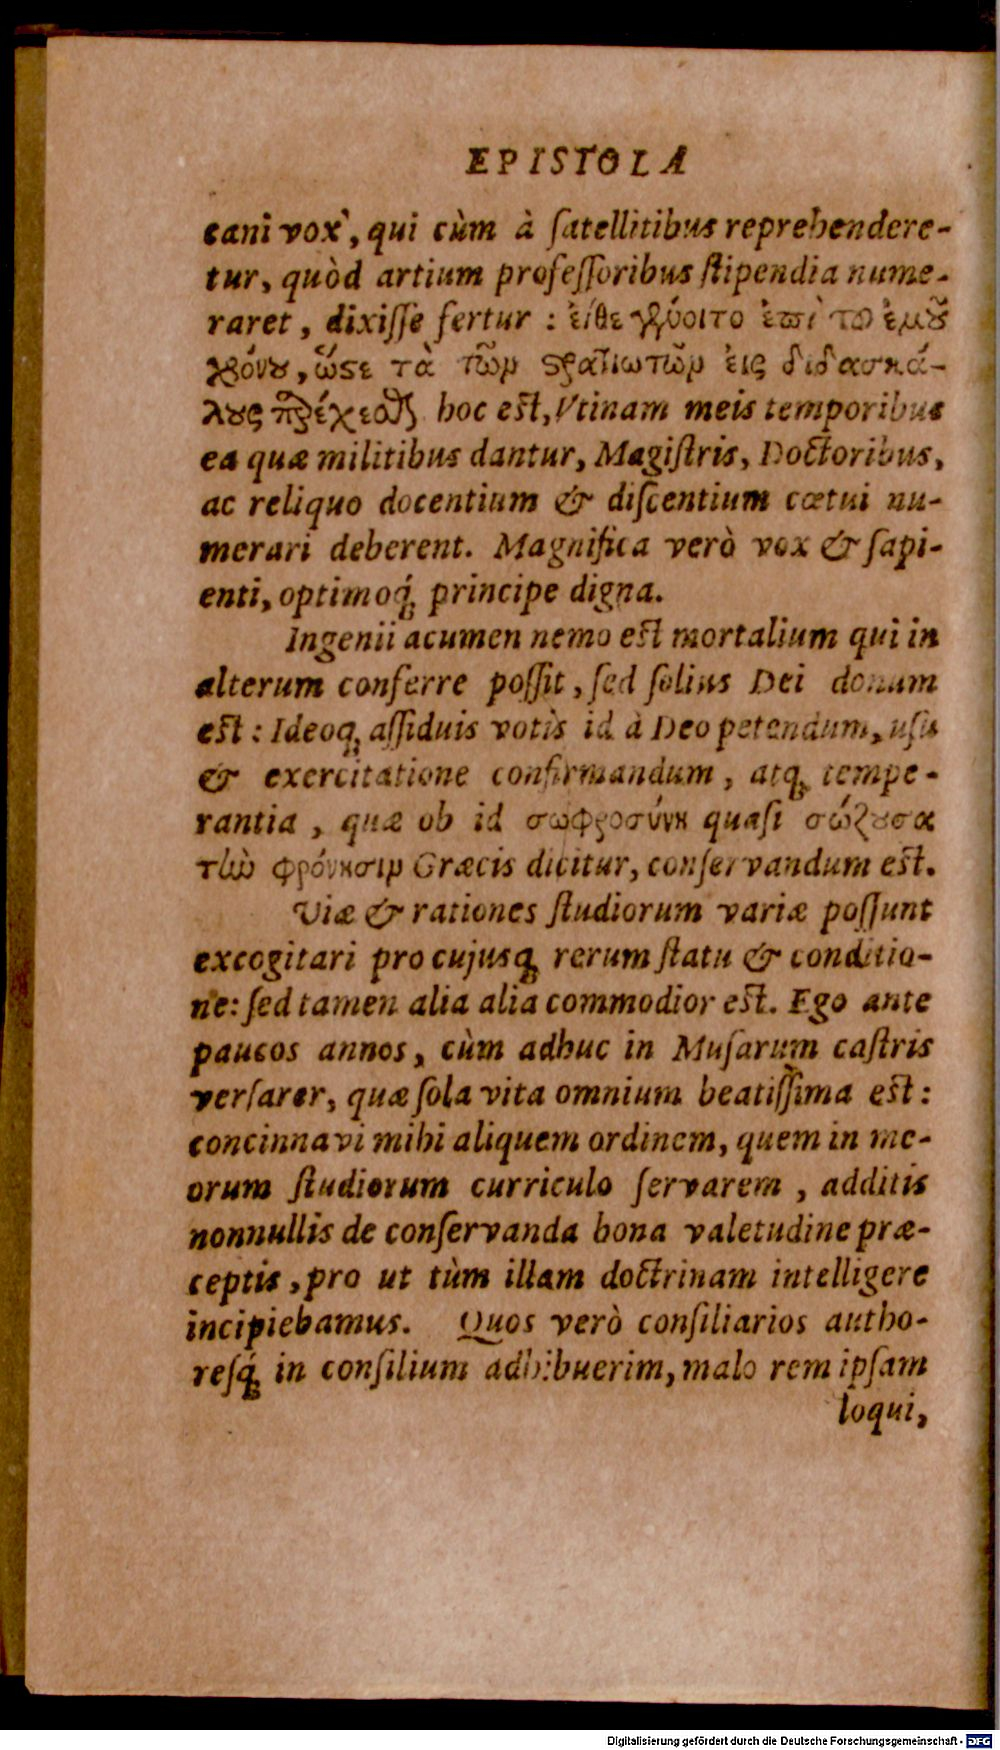 EPISTOLA
cani vox, qui cùm à ſatellitibus reprehendere-
tur, quòd artium profeſſoribus ſtipendia nume-
raret, dixiſſe fertur : ἐίθε γένοιτο ἐπὶ τȣ ἐμȣ͂
χρόνȣ, ὥϛε τὰ τῶν ϛρατιωτῶν ἐις διδασκά-
λȣς παρέχεσθαι hoc eſt, Vtinam meis temporibus
ea quæ militibus dantur, Magiſtris, Doctoribus,
ac reliquo docentium & diſcentium cœtui nu-
merari deberent. Magnifica verò vox & ſapi-
enti, optimoq́; principe digna.
Ingenii acumen nemo eſt mortalium qui in
alterum conferre poſſit, ſed ſolius Dei donum
eſt : Ideoq; aſſiduis votis id à Deo petendum, uſu
& exercitatione confirmandum, atq; tempe-
rantia, quæ ob id σωφροσύνη quaſi σώζȣσα
τὼ φρόνησιν Græcis dicitur, conſervandum eſt.
Viæ & rationes ſtudiorum variæ poſſunt
excogitari pro cujusq; rerum ſtatu & conditio-
ne: ſed tamen alia alia commodior eſt. Ego ante
paucos annos, cùm adhuc in Muſarum caſtris
verſarer, quæ ſola vita omnium beatiſſima eſt:
concinnavi mihi aliquem ordinem, quem in me-
orum ſtudiorum curriculo ſervarem, additis
nonnullis de conſervanda bona valetudine præ-
ceptis, pro ut tùm illam doctrinam intelligere
incipiebamus. Quos verò conſiliarios autho-
resq́; in conſilium adhibuerim, malo rem ipſam
loqui,
Digitalisierung gefördert durch die Deutsche Forschungsgemeinschaft - DFG